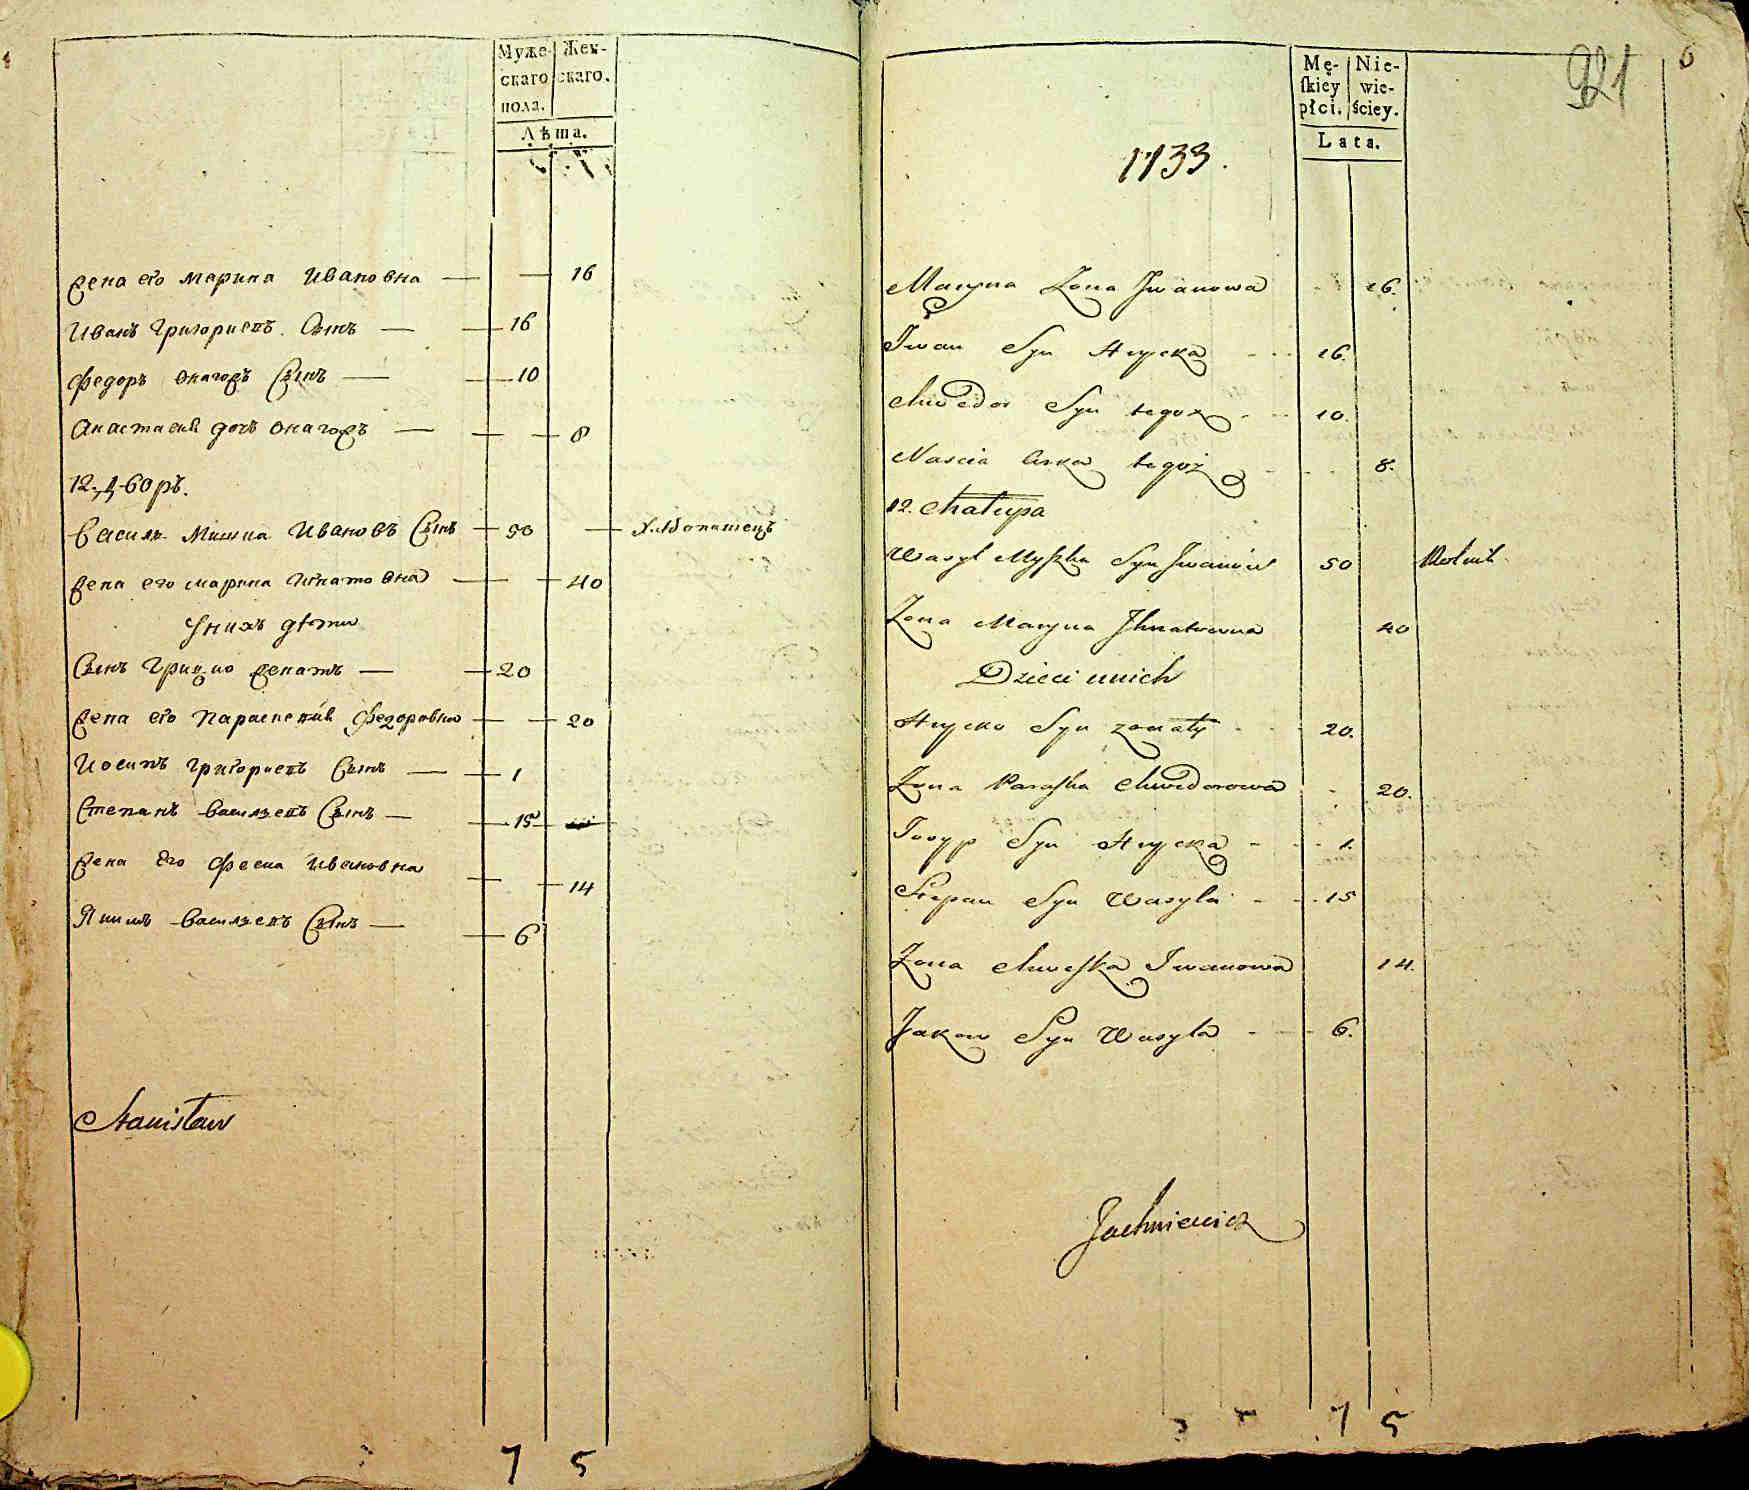 Муже- Жен-
скаго скаго.
пола.
Лѣта.
жена его марина Ивановна — — 16
Иванъ Григориевъ Сынъ — 16
Федоръ онагожъ Сынъ — 10
Анастасия дочь онагожъ — — 8
12. Дворъ.
Василь Мишка Ивановъ Сынъ — 50 — Хлѣбопашецъ
жена его марина Игнатовна — — 40
У нихъ дѣти
Сынъ Грицко женатъ — 20
жена его Параскевия Федоровна — — 20
Иосипъ Григориевъ Сынъ — 1
Степанъ Васильевъ Сынъ — 15
жена Его Феска Ивановна — 14
Якимъ Васильевъ Сынъ — 6
Stanisław
7 5
921
6
Mę- Nie-
skiey wie-
płci. ściey.
Lata.
1133.
Maryna Żona Jwanowa 16.
Jwan Syn Hrycka 16.
Chwedor Syn tegoż 10.
Nascia Curka tegoż 8.
12. Chałupa
Wasyl Myszka Syn Jwanów 50 Rolnik
Żona Maryna Jhnatowna 40
Dzieci unich
Hrycko Syn zonaty 20.
Żona Paraska Chwedorowa 20.
Josyp Syn Hrycka 1.
Stepan Syn Wasyla 15
Żona Chweska Jwanowa 14.
Jakow Syn Wasyla 6.
Jachniewicz
7 5